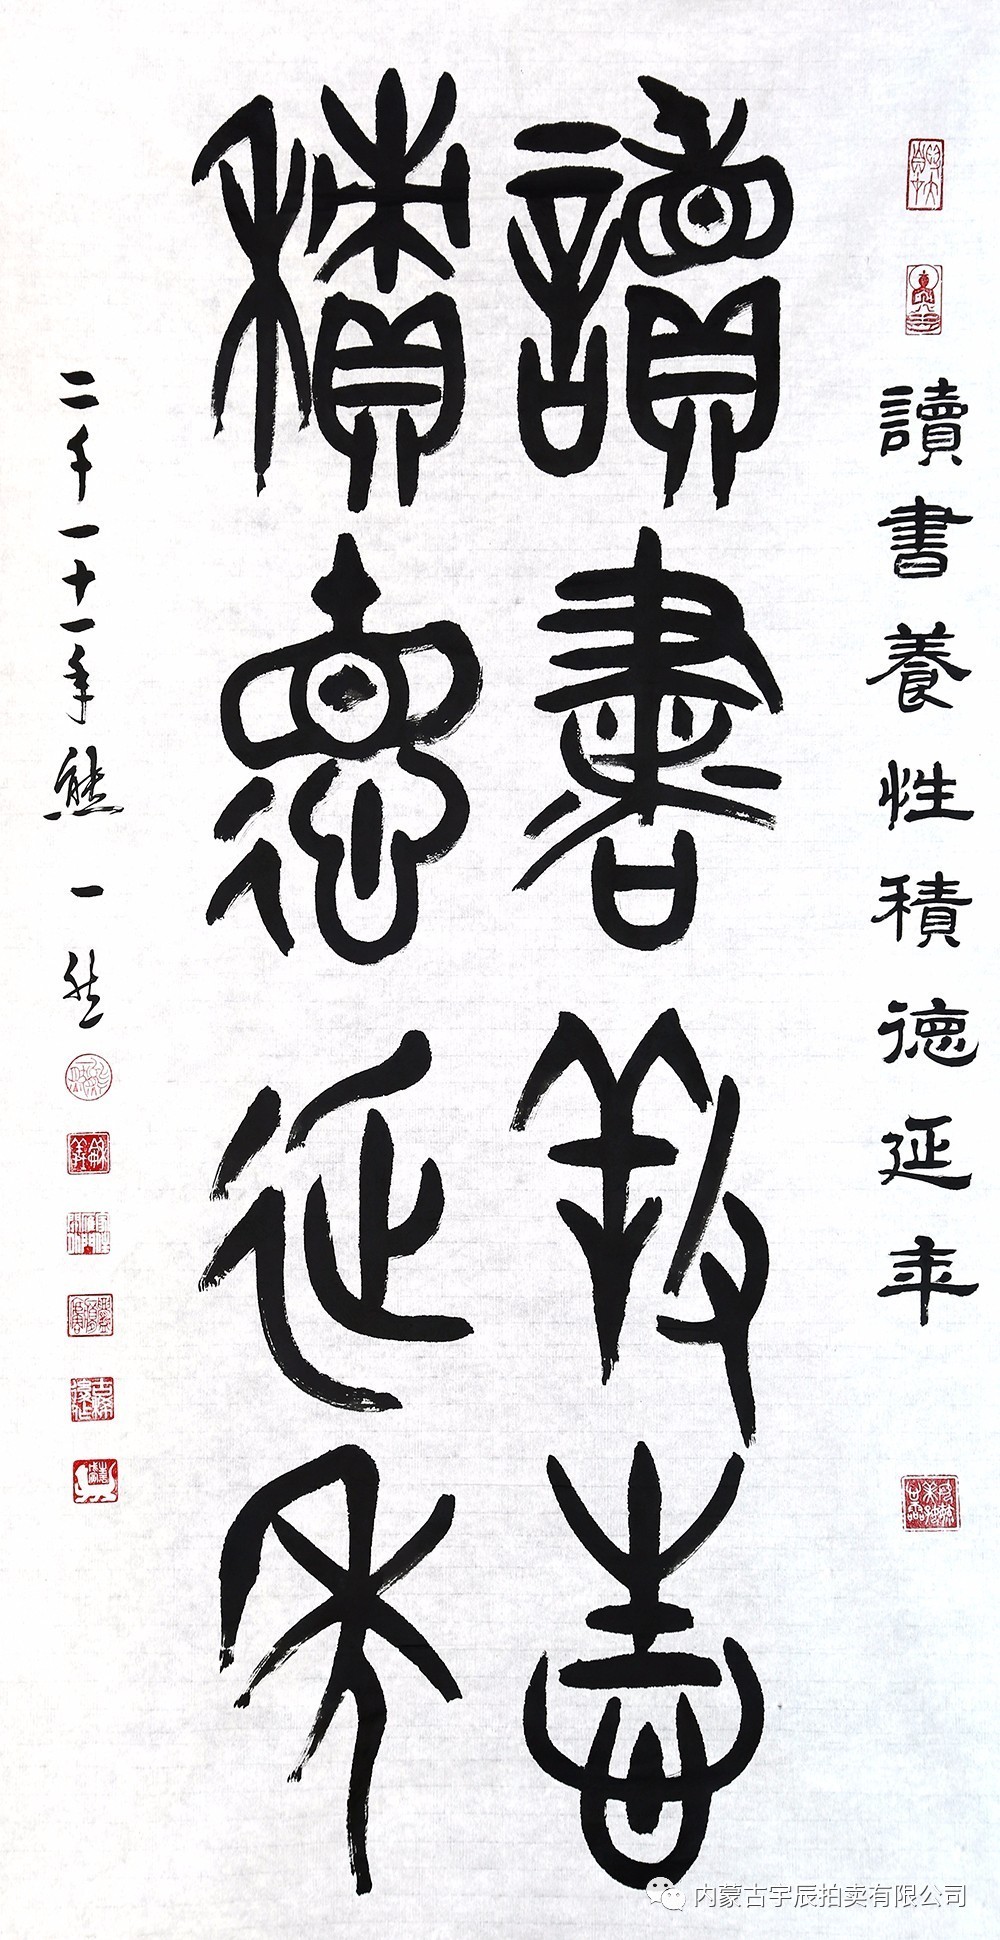 讀書養性積德延年
讀書養性
積德延年
二千一十一年熊一然
内蒙古宇辰拍卖有限公司